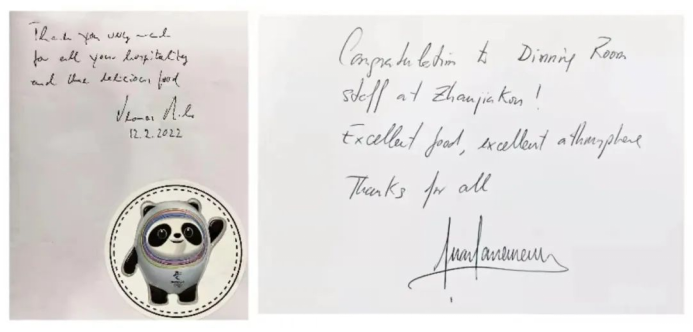 Thank you very much
for all your hospitality
and the delicious food
12.2.2022
Congratulation to Dinning Room
staff at Zhanjiakou!
Excellent food, excellent athmosphere
Thanks for all